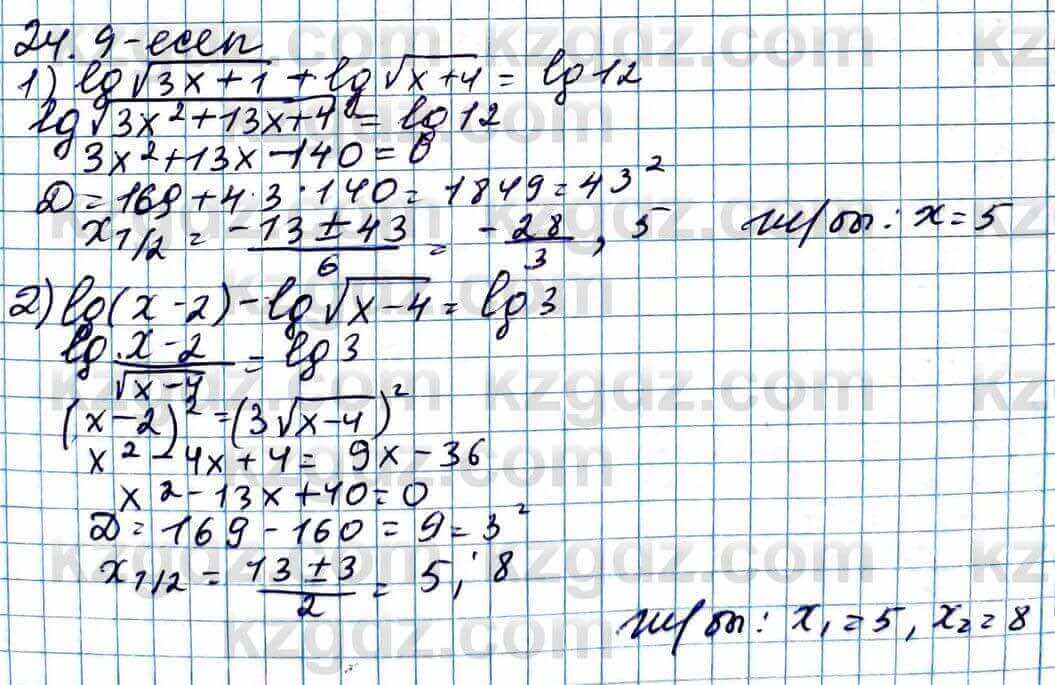 24.9-есеп
1) lg√(3x+1) + lg√(x+4) = lg12
lg√(3x²+13x+4) = lg12
3x²+13x-140=0
D=169+4·3·140=1849=43²
x1/2 = (-13±43)/6 = -28/3, 5 ж/бы: x=5
2) lg(x-2)-lg√(x-4)=lg3
lg (x-2)/√(x-4) = lg3
(x-2)²=(3√(x-4))²
x²-4x+4=9x-36
x²-13x+40=0
D=169-160=9=3²
x1/2 = (13±3)/2 = 5; 8
ж/бы: x₁=5, x₂=8
kzgdz.com